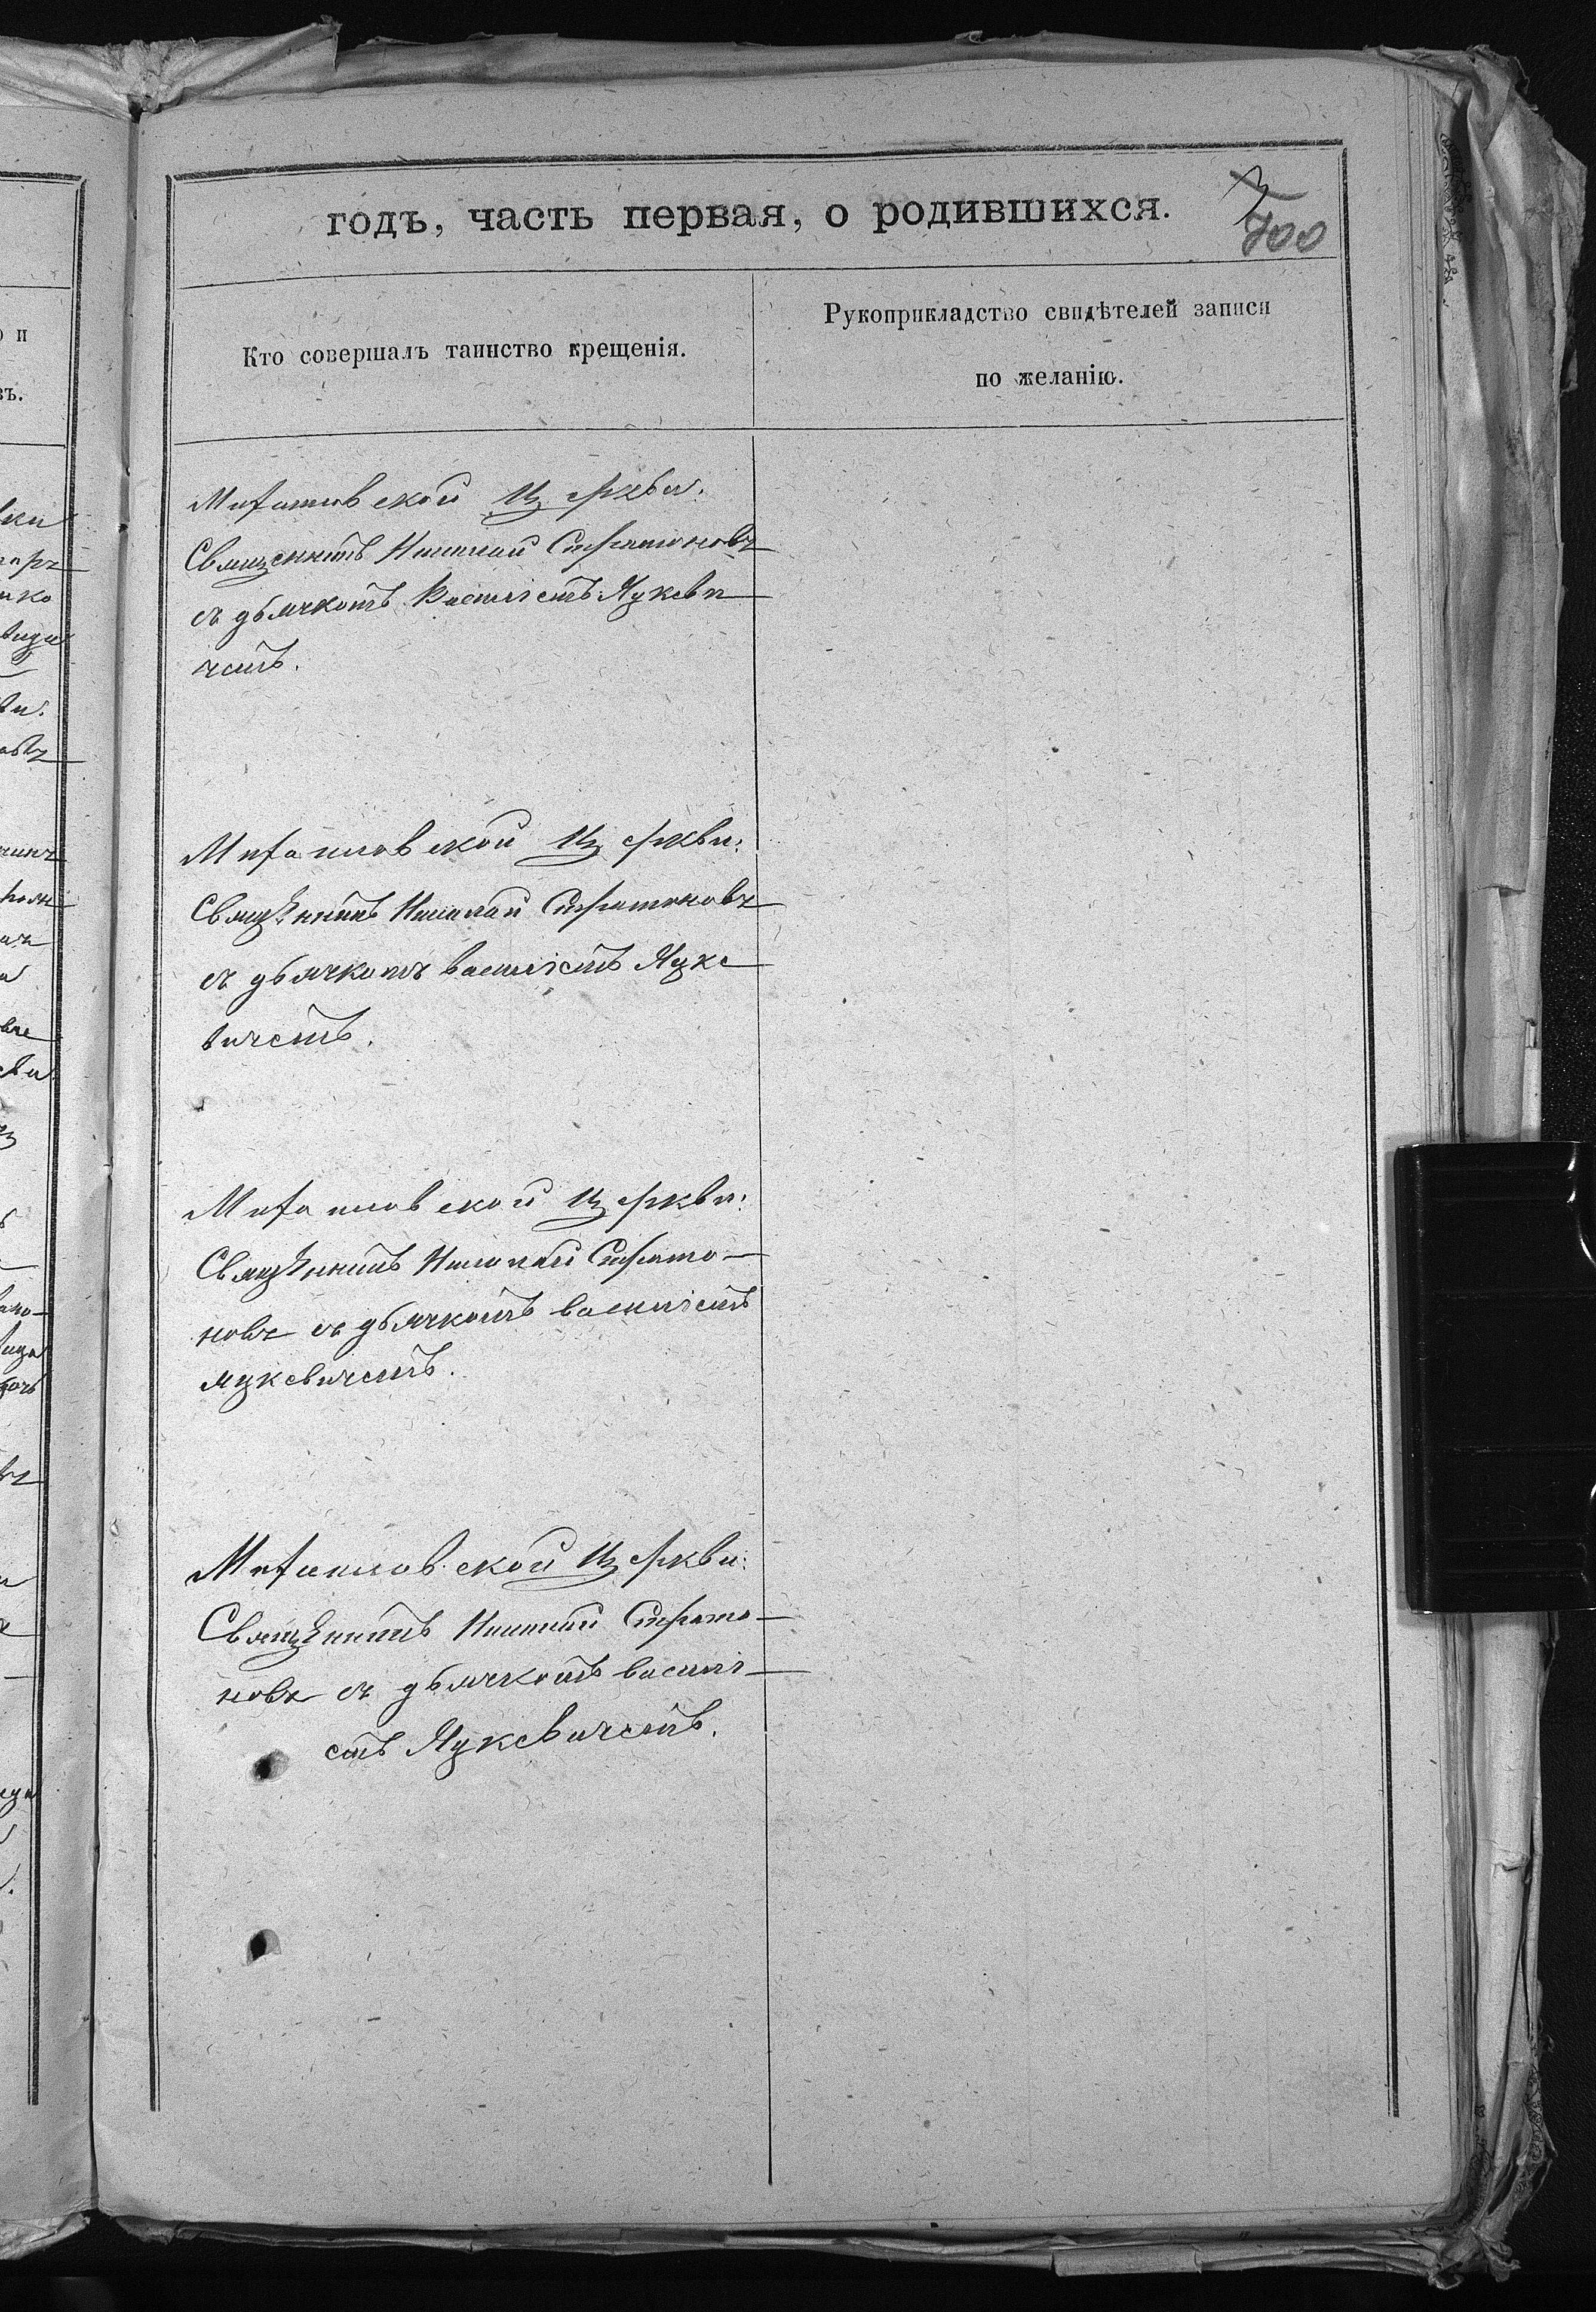 годъ, часть первая, о родившихся.
3
700
Кто совершалъ таинство крещенія.
Рукоприкладство свидѣтелей записи
по желанію.
Михайловской Церкви.
Священникъ Николай Стратоновъ
съ дьячкомъ Василіемъ Яцкеви
чемъ.
Михайловской Церкви.
Священникъ Николай Стратоновъ
съ дьячкомъ Василіемъ Яцке
вичемъ.
Михайловской Церкви.
Священникъ Николай Страто-
новъ съ дьячкомъ Василіемъ
Яцкевичемъ.
Михайловской Церкви.
Священникъ Николай Страто-
новъ съ дьячкомъ Василі-
емъ Яцкевичемъ.